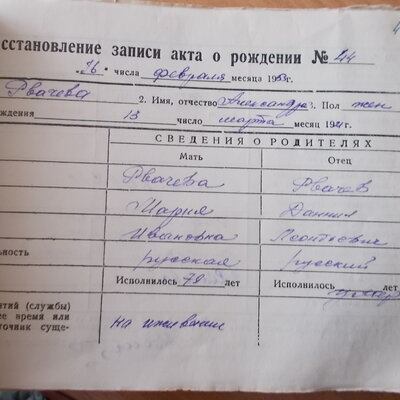 сстановление записи акта о рождении № 44
"26" числа февраля месяца 1953г.
Рвачева 2. Имя, отчество Александра 3. Пол жен
ождения 13 число марта месяц 19
СВЕДЕНИЯ О РОДИТЕЛЯХ
Мать Отец
Рвачева Рвачев
Мария Даниил
Ивановна Леонтьевич
ность русская русский
Исполнилось 70 лет Исполнилось лет
умер
ятий (службы)
ее время или
точник суще-
на иждивении